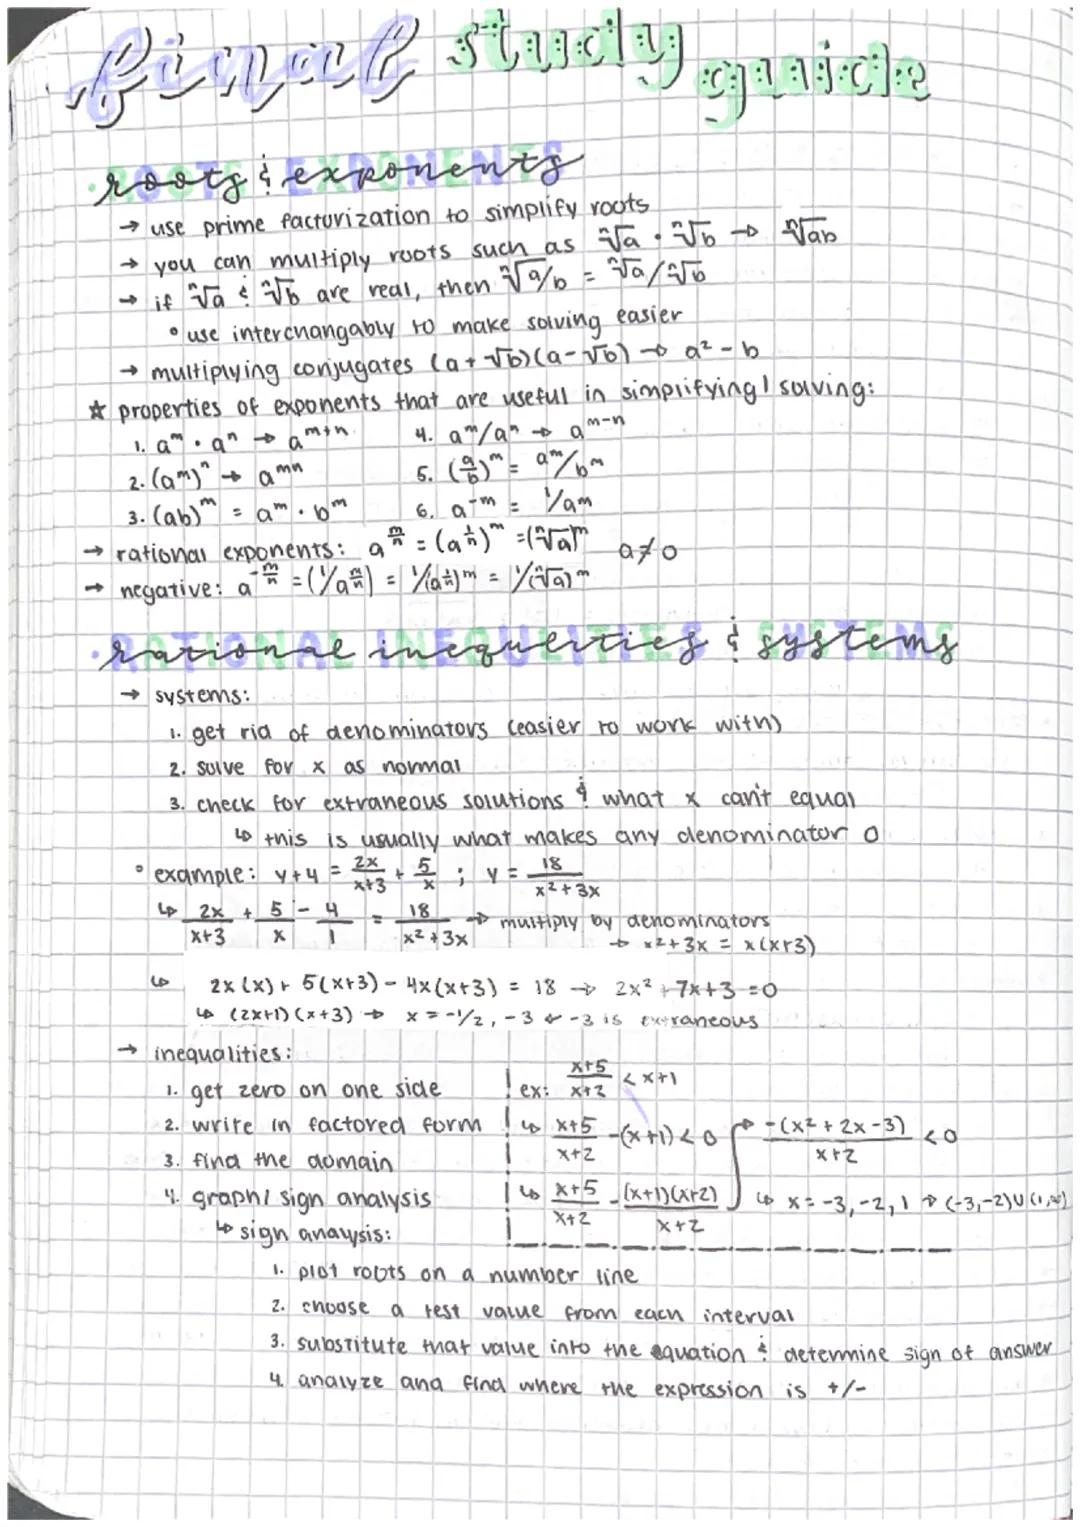 final study guide
roots & exponents
→ use prime factorization to simplify roots
→ you can multiply roots such as ⁿ√a · ⁿ√b → ⁿ√ab
→ if ⁿ√a & ⁿ√b are real, then ⁿ√a/b = ⁿ√a/ⁿ√b
° use interchangably to make solving easier
→ multiplying conjugates (a+√b)(a-√b) → a² - b
☆ properties of exponents that are useful in simplifying/solving:
1. aᵐ · aⁿ → aᵐ⁺ⁿ 4. aᵐ/aⁿ → aᵐ⁻ⁿ
2. (aᵐ)ⁿ → aᵐⁿ 5. (a/b)ᵐ = aᵐ/bᵐ
3. (ab)ᵐ = aᵐ · bᵐ 6. a⁻ᵐ = 1/aᵐ
→ rational exponents: a^(m/n) = (a^(1/n))ᵐ = (ⁿ√a)ᵐ a≠0
→ negative: a^(-m/n) = (1/a^(m/n)) = 1/(a^(1/n))ᵐ = 1/(ⁿ√a)ᵐ
rational inequlities & systems
→ systems:
1. get rid of denominators (easier to work with)
2. solve for x as normal
3. check for extraneous solutions & what x can't equal
↳ this is usually what makes any denominator 0
° example: y+4 = 2x/(x+3) + 5/x ; y = 18/(x²+3x)
↳ 2x/(x+3) + 5/x - 4/1 = 18/(x²+3x) → multiply by denominators
→ x²+3x = x(x+3)
↳ 2x(x) + 5(x+3) - 4x(x+3) = 18 → 2x²+7x+3=0
↳ (2x+1)(x+3) → x = -1/2, -3 ← -3 is extraneous
→ inequalities:
1. get zero on one side
2. write in factored form
3. find the domain
4. graph/sign analysis
ex: (x+5)/(x+2) < x+1
↳ (x+5)/(x+2) -(x+1) < 0
↳ (x+5)/(x+2) - (x+1)(x+2)/(x+2)
→ -(x²+2x-3)/(x+2) < 0
↳ x = -3, -2, 1 → (-3,-2)∪(1,∞)
↳ sign analysis:
1. plot roots on a number line
2. choose a test value from each interval
3. substitute that value into the equation & determine sign of answer
4. analyze and find where the expression is +/-